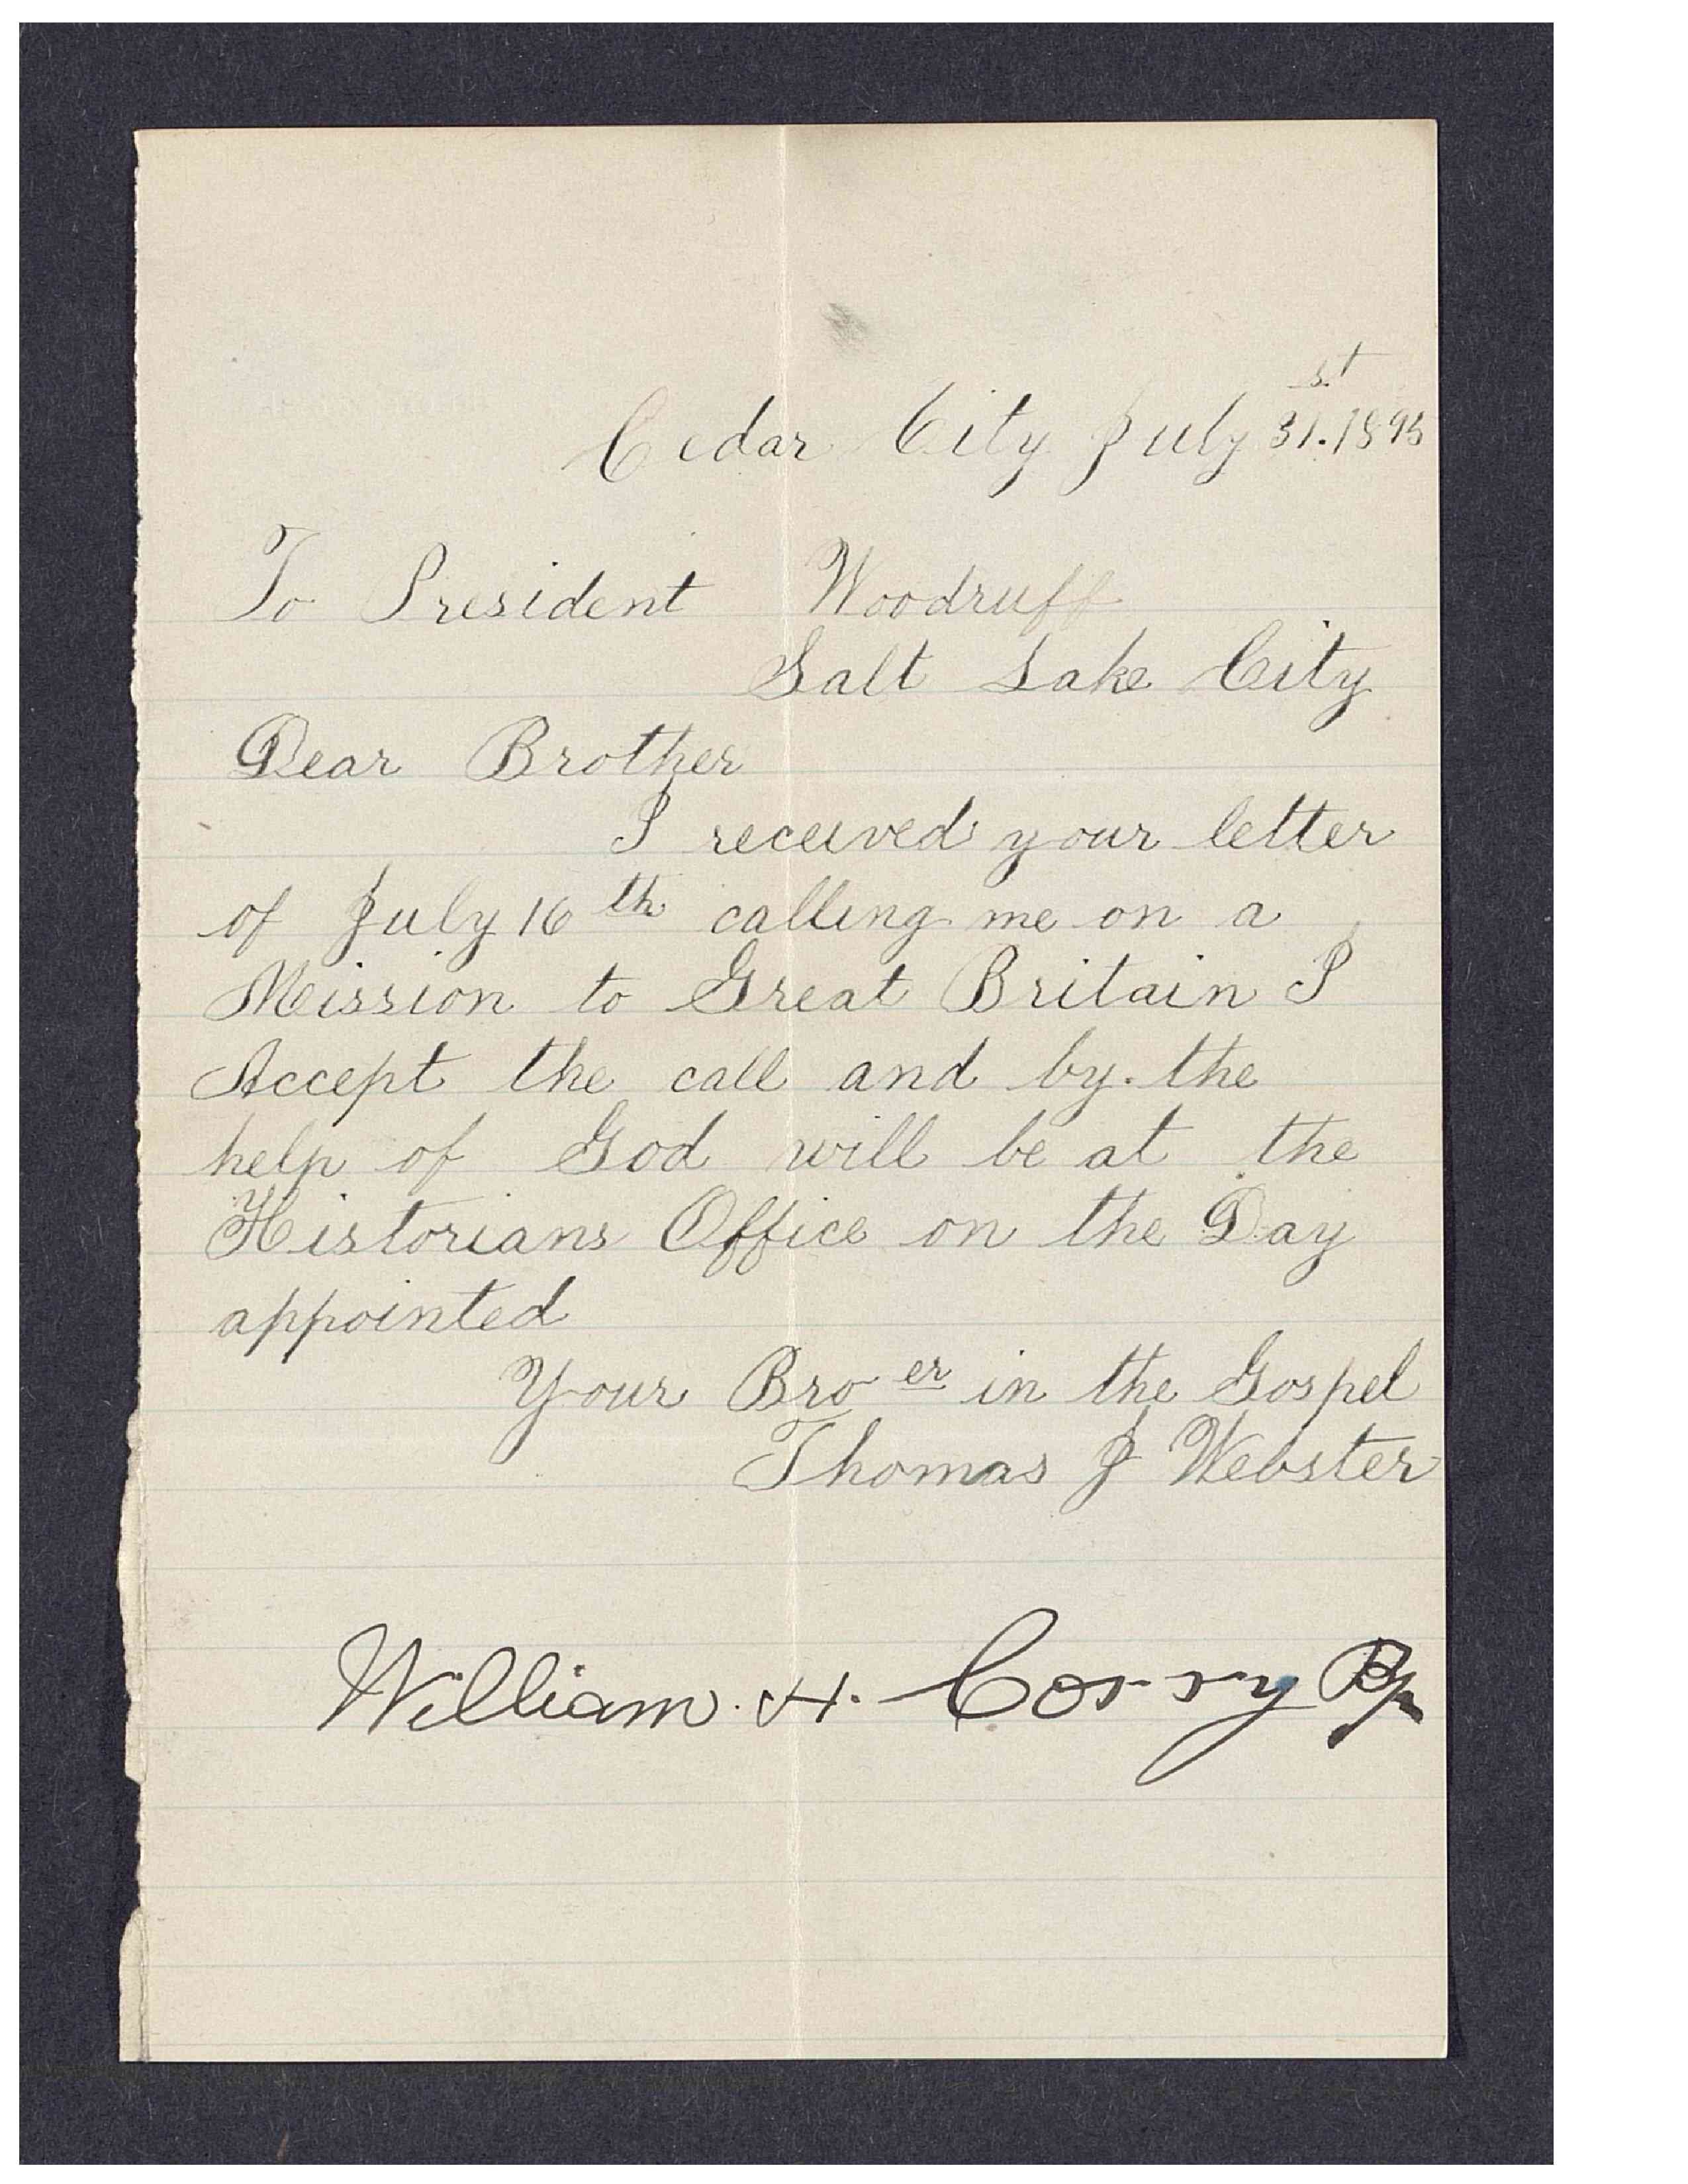 Cedar City July 31.st 1895
To President Woodruff
Salt Lake City
Dear Brother
I received your letter
of July 16th calling me on a
Mission to Great Britain I
Accept the call and by the
help of God will be at the
Historians Office on the Day
appointed
Your Broer in the Gospel
Thomas J Webster
William. H. Corry Bp